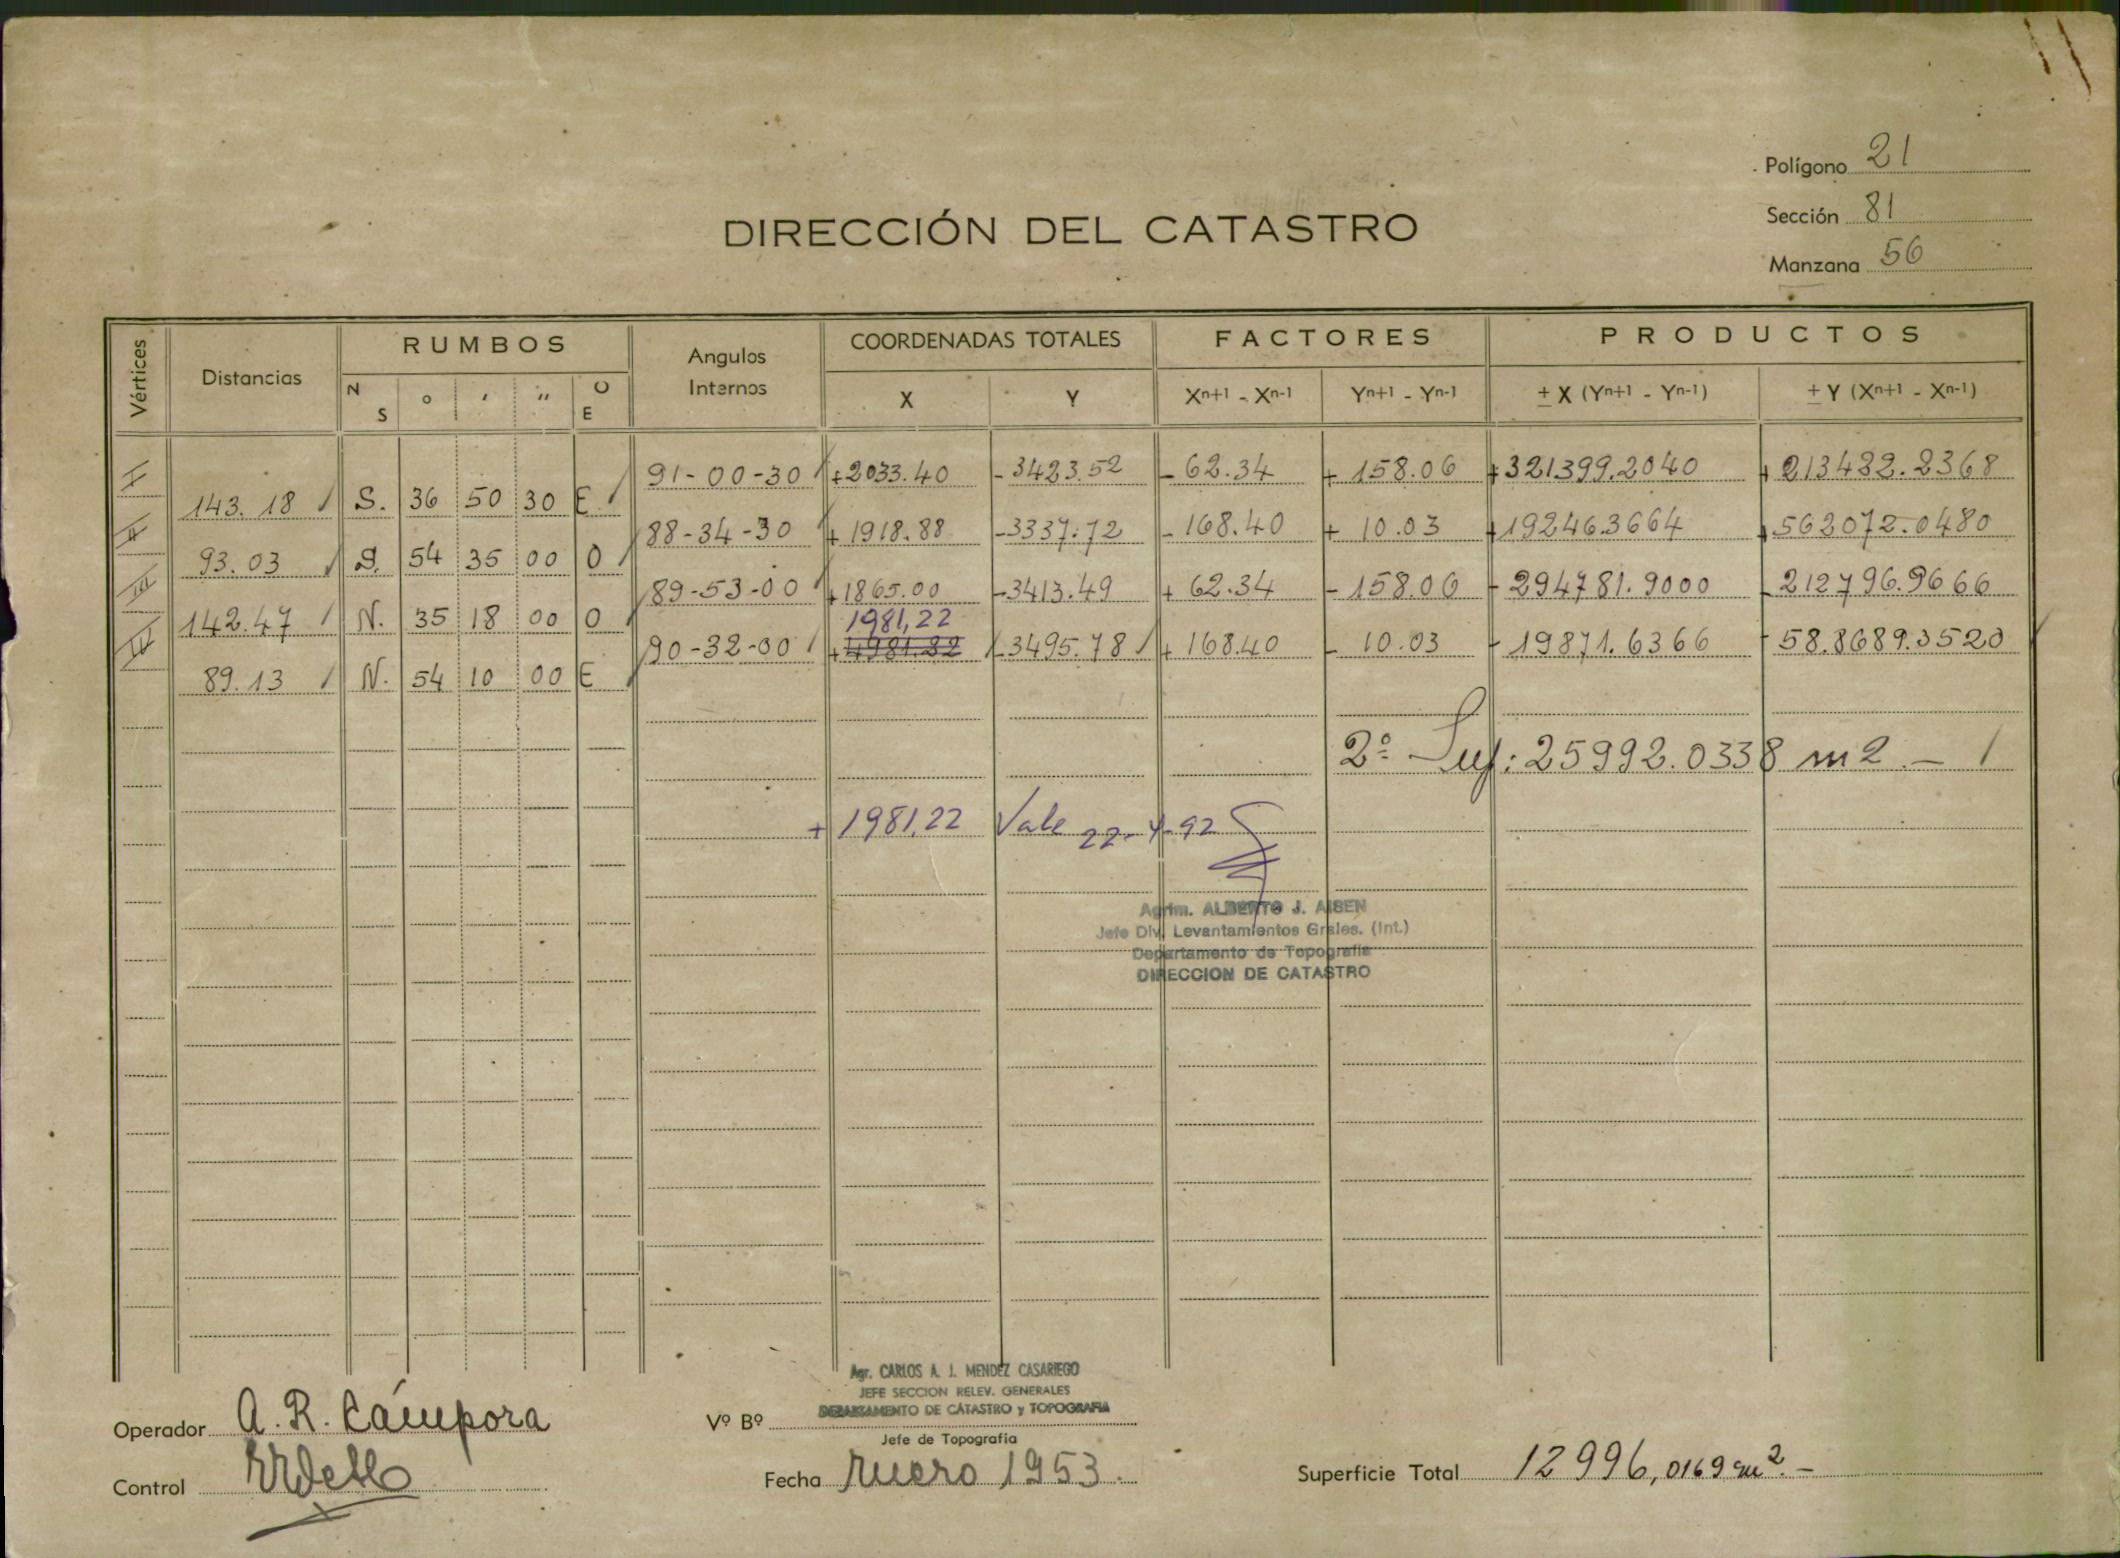 Polígono 21
Sección 81
Manzana 56
DIRECCIÓN DEL CATASTRO
Vértices Distancias RUMBOS Angulos Internos COORDENADAS TOTALES FACTORES PRODUCTOS
N S ° ′ ″ O E X Y Xn+1 - Xn-1 Yn+1 - Yn-1 ± X (Yn+1 - Yn-1) ± Y (Xn+1 - Xn-1)
I 91-00-30 +2033.40 -3423.52 -62.34 +158.06 +321399.2040 +213422.2368
143.18 S. 36 50 30 E
II 88-34-30 +1918.88 -3337.72 -168.40 +10.03 +19246.3664 +562072.0480
93.03 S. 54 35 00 O
III 89-53-00 +1865.00 -3413.49 +62.34 -158.06 -294781.9000 -212796.9666
142.47 N. 35 18 00 O
1981,22
IV 90-32-00 +1981.22 -3495.78 +168.40 -10.03 -19871.6366 -58.8689.3520
89.13 N. 54 10 00 E
2º Sup: 25992.0338 m2.-
+1981,22 Vale 22-4-92
Agrim. ALBERTO J. AISEN
Jefe Div. Levantamientos Grales. (Int.)
Departamento de Topografía
DIRECCION DE CATASTRO
Agr. CARLOS A. J. MENDEZ CASARIEGO
JEFE SECCION RELEV. GENERALES
DEPARTAMENTO DE CATASTRO y TOPOGRAFIA
Operador A. R. Cámpora
Vº Bº
Jefe de Topografía
Control
Fecha Enero 1953.
Superficie Total 12996,0169 m2.-